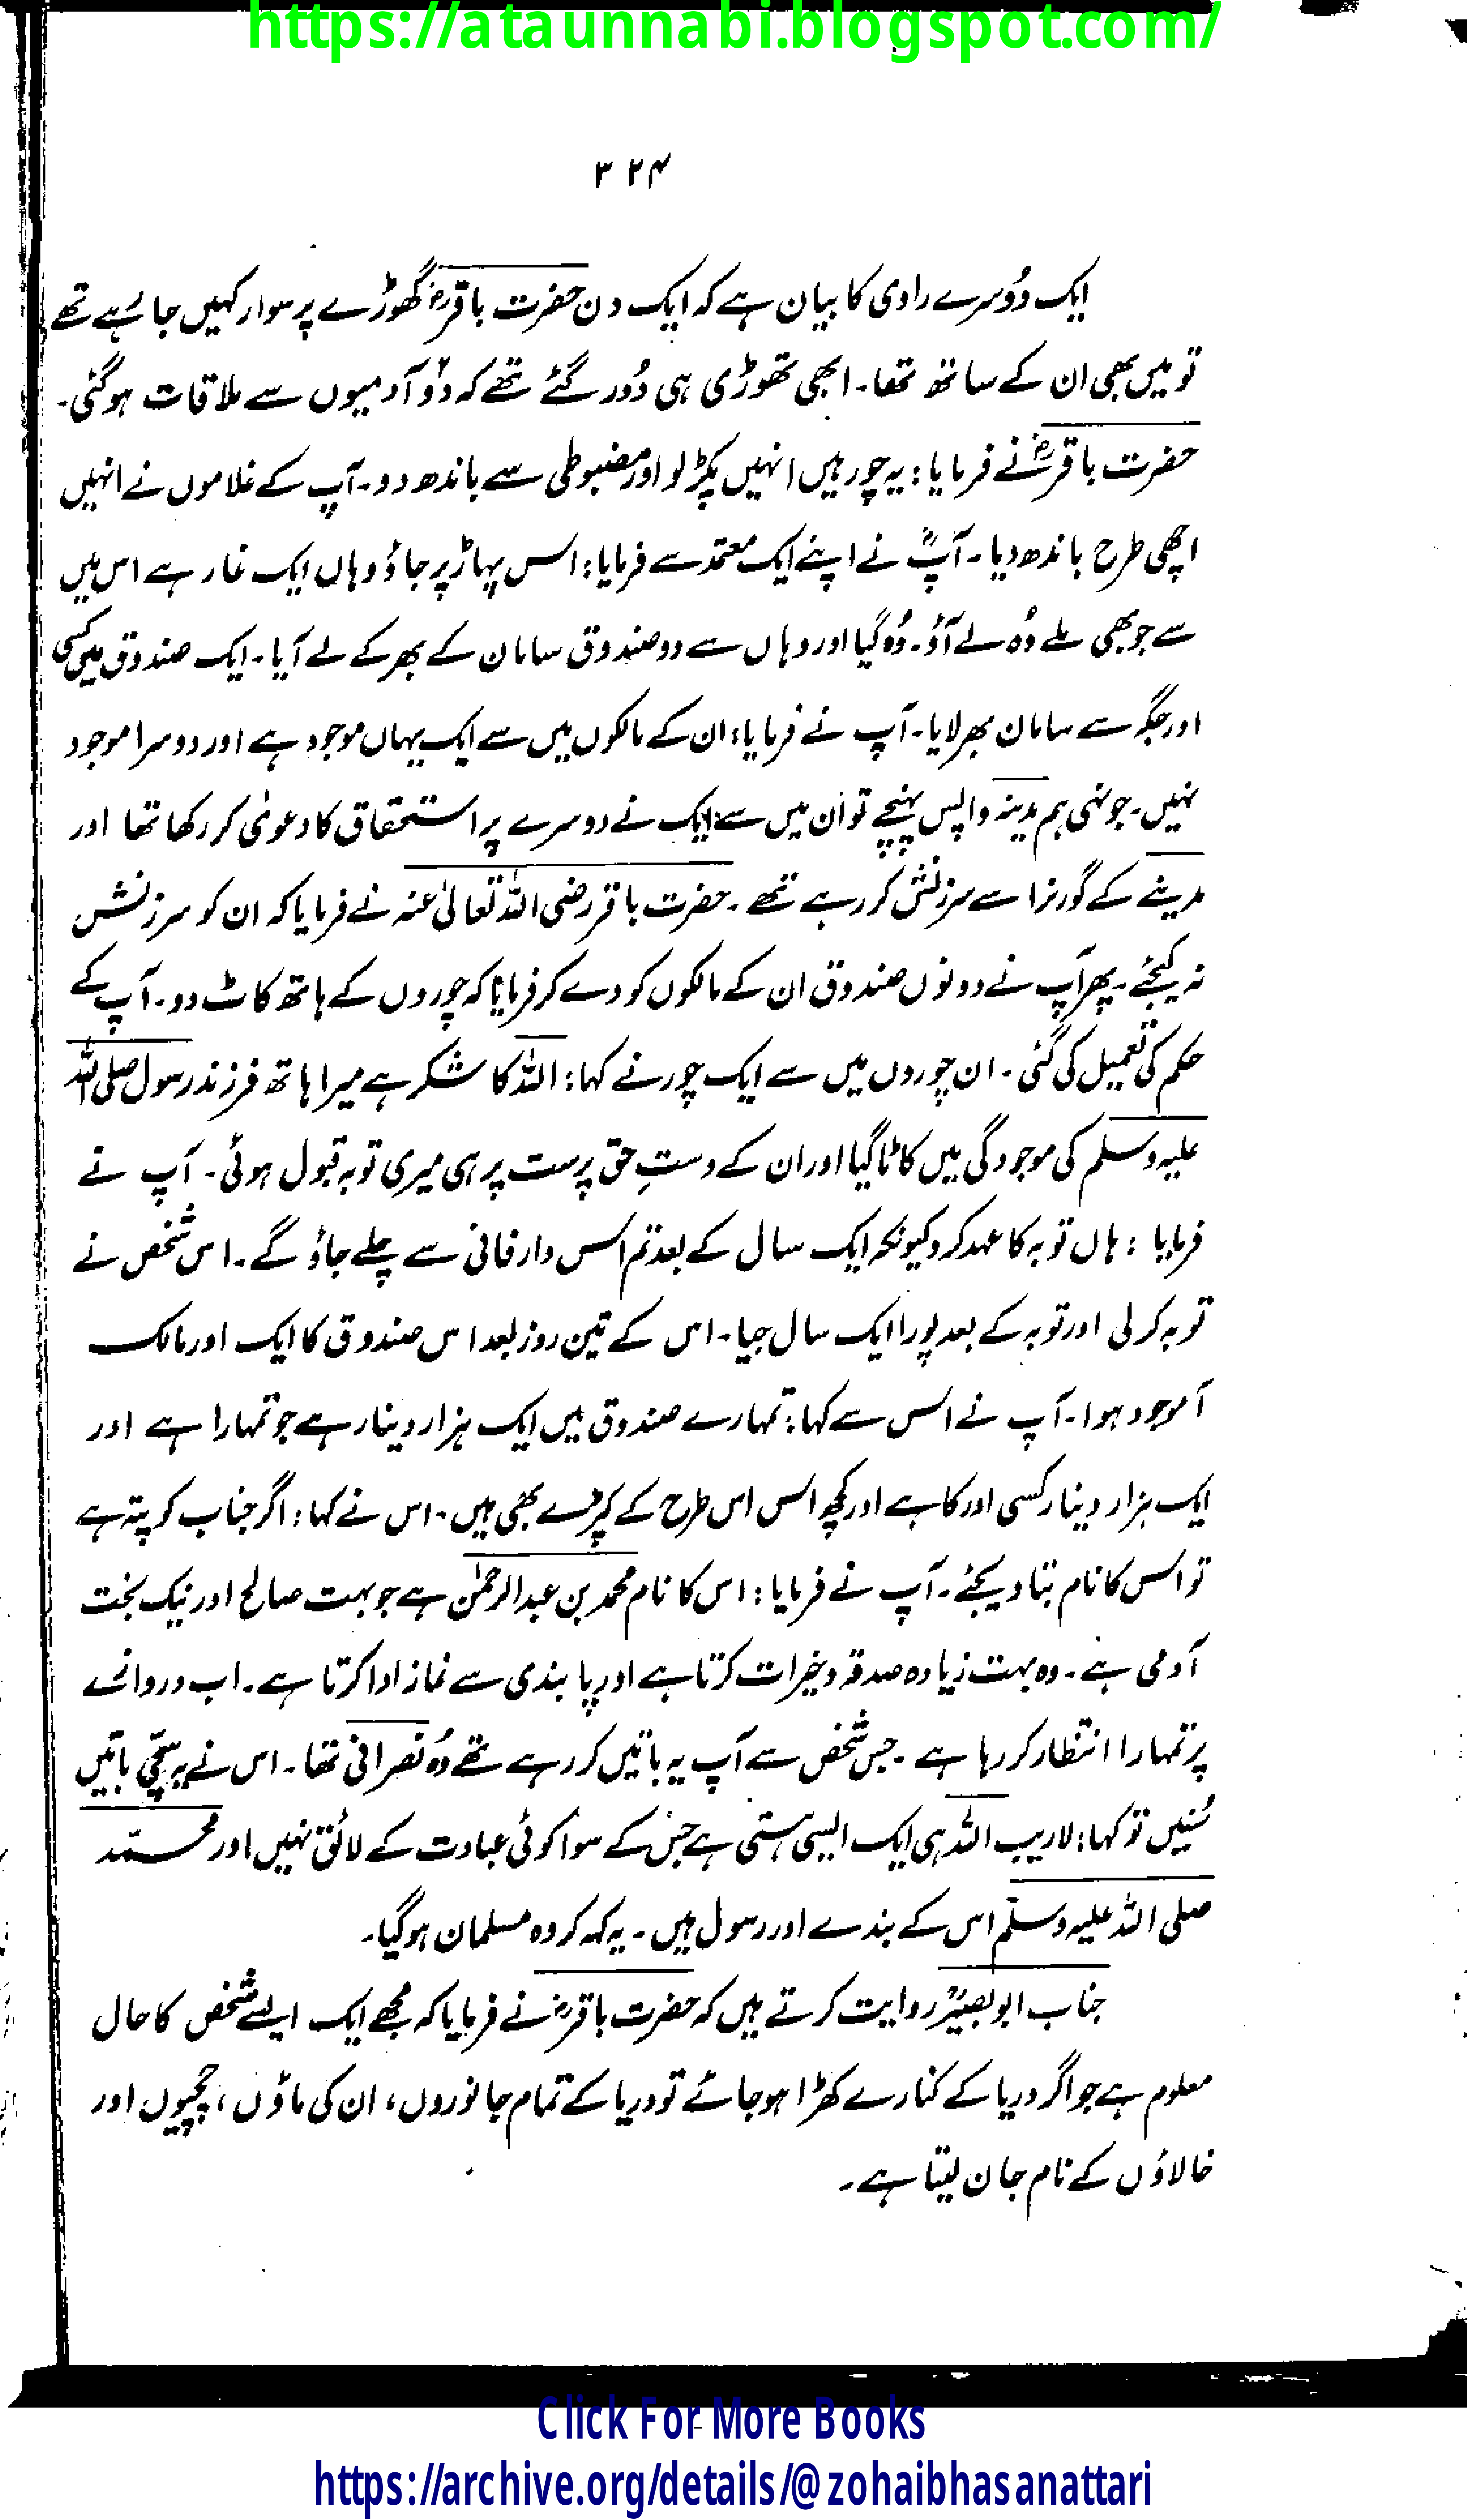 https://ataunnabi.blogspot.com/
۳۲۴
ایک دُوسرے راوی کا بیان ہے کہ ایک دن حضرت باقرؓ گھوڑے پر سوار کہیں جا رہے تھے
تو میں بھی ان کے ساتھ تھا۔ ابھی تھوڑی ہی دُور گئے تھے کہ دو آدمیوں سے ملاقات ہوگئی۔
حضرت باقرؓ نے فرمایا: یہ چور ہیں انہیں پکڑ لو اور مضبوطی سے باندھ دو۔ آپ کے غلاموں نے انہیں
اچھی طرح باندھ دیا۔ آپؓ نے اپنے ایک معتمد سے فرمایا: اس پہاڑ پر جاؤ وہاں ایک غار ہے اس میں
سے جو بھی ملے وُہ لے آؤ۔ وُہ گیا اور وہاں سے دو صندوق سامان کے بھر کے لے آیا۔ ایک صندوق میں کسی
اور جگہ سے سامان بھر لایا۔ آپ نے فرمایا: ان کے مالکوں میں سے ایک یہاں موجود ہے اور دوسرا موجود
نہیں۔ جونہی ہم مدینہ واپس پہنچے تو ان میں سے ایک نے دوسرے پر استحقاق کا دعوٰی کر رکھا تھا اور
مدینے کے گورنر اسے سرزنش کر رہے تھے۔ حضرت باقر رضی اللہ تعالیٰ عنہ نے فرمایا کہ ان کو سرزنش
نہ کیجئے۔ پھر آپ نے دونوں صندوق ان کے مالکوں کو دے کر فرمایا کہ چوروں کے ہاتھ کاٹ دو۔ آپ کے
حکم کی تعمیل کی گئی۔ ان چوروں میں سے ایک چور نے کہا: اللہ کا شکر ہے میرا ہاتھ فرزند رسول صلی اللہ
علیہ وسلم کی موجودگی میں کاٹا گیا اور ان کے دستِ حق پرست پر ہی میری توبہ قبول ہوئی۔ آپ نے
فرمایا: ہاں توبہ کا عہد کرو کیونکہ ایک سال کے بعد تم اس دار فانی سے چلے جاؤ گے۔ اس شخص نے
توبہ کر لی اور توبہ کے بعد پورا ایک سال جیا۔ اس کے تین روز بعد اس صندوق کا ایک اور مالک
آ موجود ہوا۔ آپ نے اس سے کہا: تمہارے صندوق میں ایک ہزار دینار ہے جو تمہارا ہے اور
ایک ہزار دینار کسی اور کا ہے اور کچھ اس اس طرح کے کپڑے بھی ہیں۔ اس نے کہا: اگر جناب کو پتہ ہے
تو اس کا نام بتا دیجئے۔ آپ نے فرمایا: اس کا نام محمد بن عبدالرحمٰن ہے جو بہت صالح اور نیک بخت
آدمی ہے۔ وہ بہت زیادہ صدقہ و خیرات کرتا ہے اور پابندی سے نماز ادا کرتا ہے۔ اب دروازے
پر تمہارا انتظار کر رہا ہے۔ جس شخص سے آپ یہ باتیں کر رہے تھے وُہ نصرانی تھا۔ اس نے یہ سچّی باتیں
سُنیں تو کہا: لاریب اللہ ہی ایک ایسی ہستی ہے جس کے سوا کوئی عبادت کے لائق نہیں اور محمّد
صلی اللہ علیہ وسلّم اس کے بندے اور رسول ہیں۔ یہ کہہ کر وہ مسلمان ہوگیا۔
جناب ابو بصیرؓ روایت کرتے ہیں کہ حضرت باقرؓ نے فرمایا کہ مجھے ایک ایسے شخص کا حال
معلوم ہے جو اگر دریا کے کنارے کھڑا ہو جائے تو دریا کے تمام جانوروں، ان کی ماؤں، چچیوں اور
خالاؤں کے نام جان لیتا ہے۔
Click For More Books
https://archive.org/details/@zohaibhasanattari